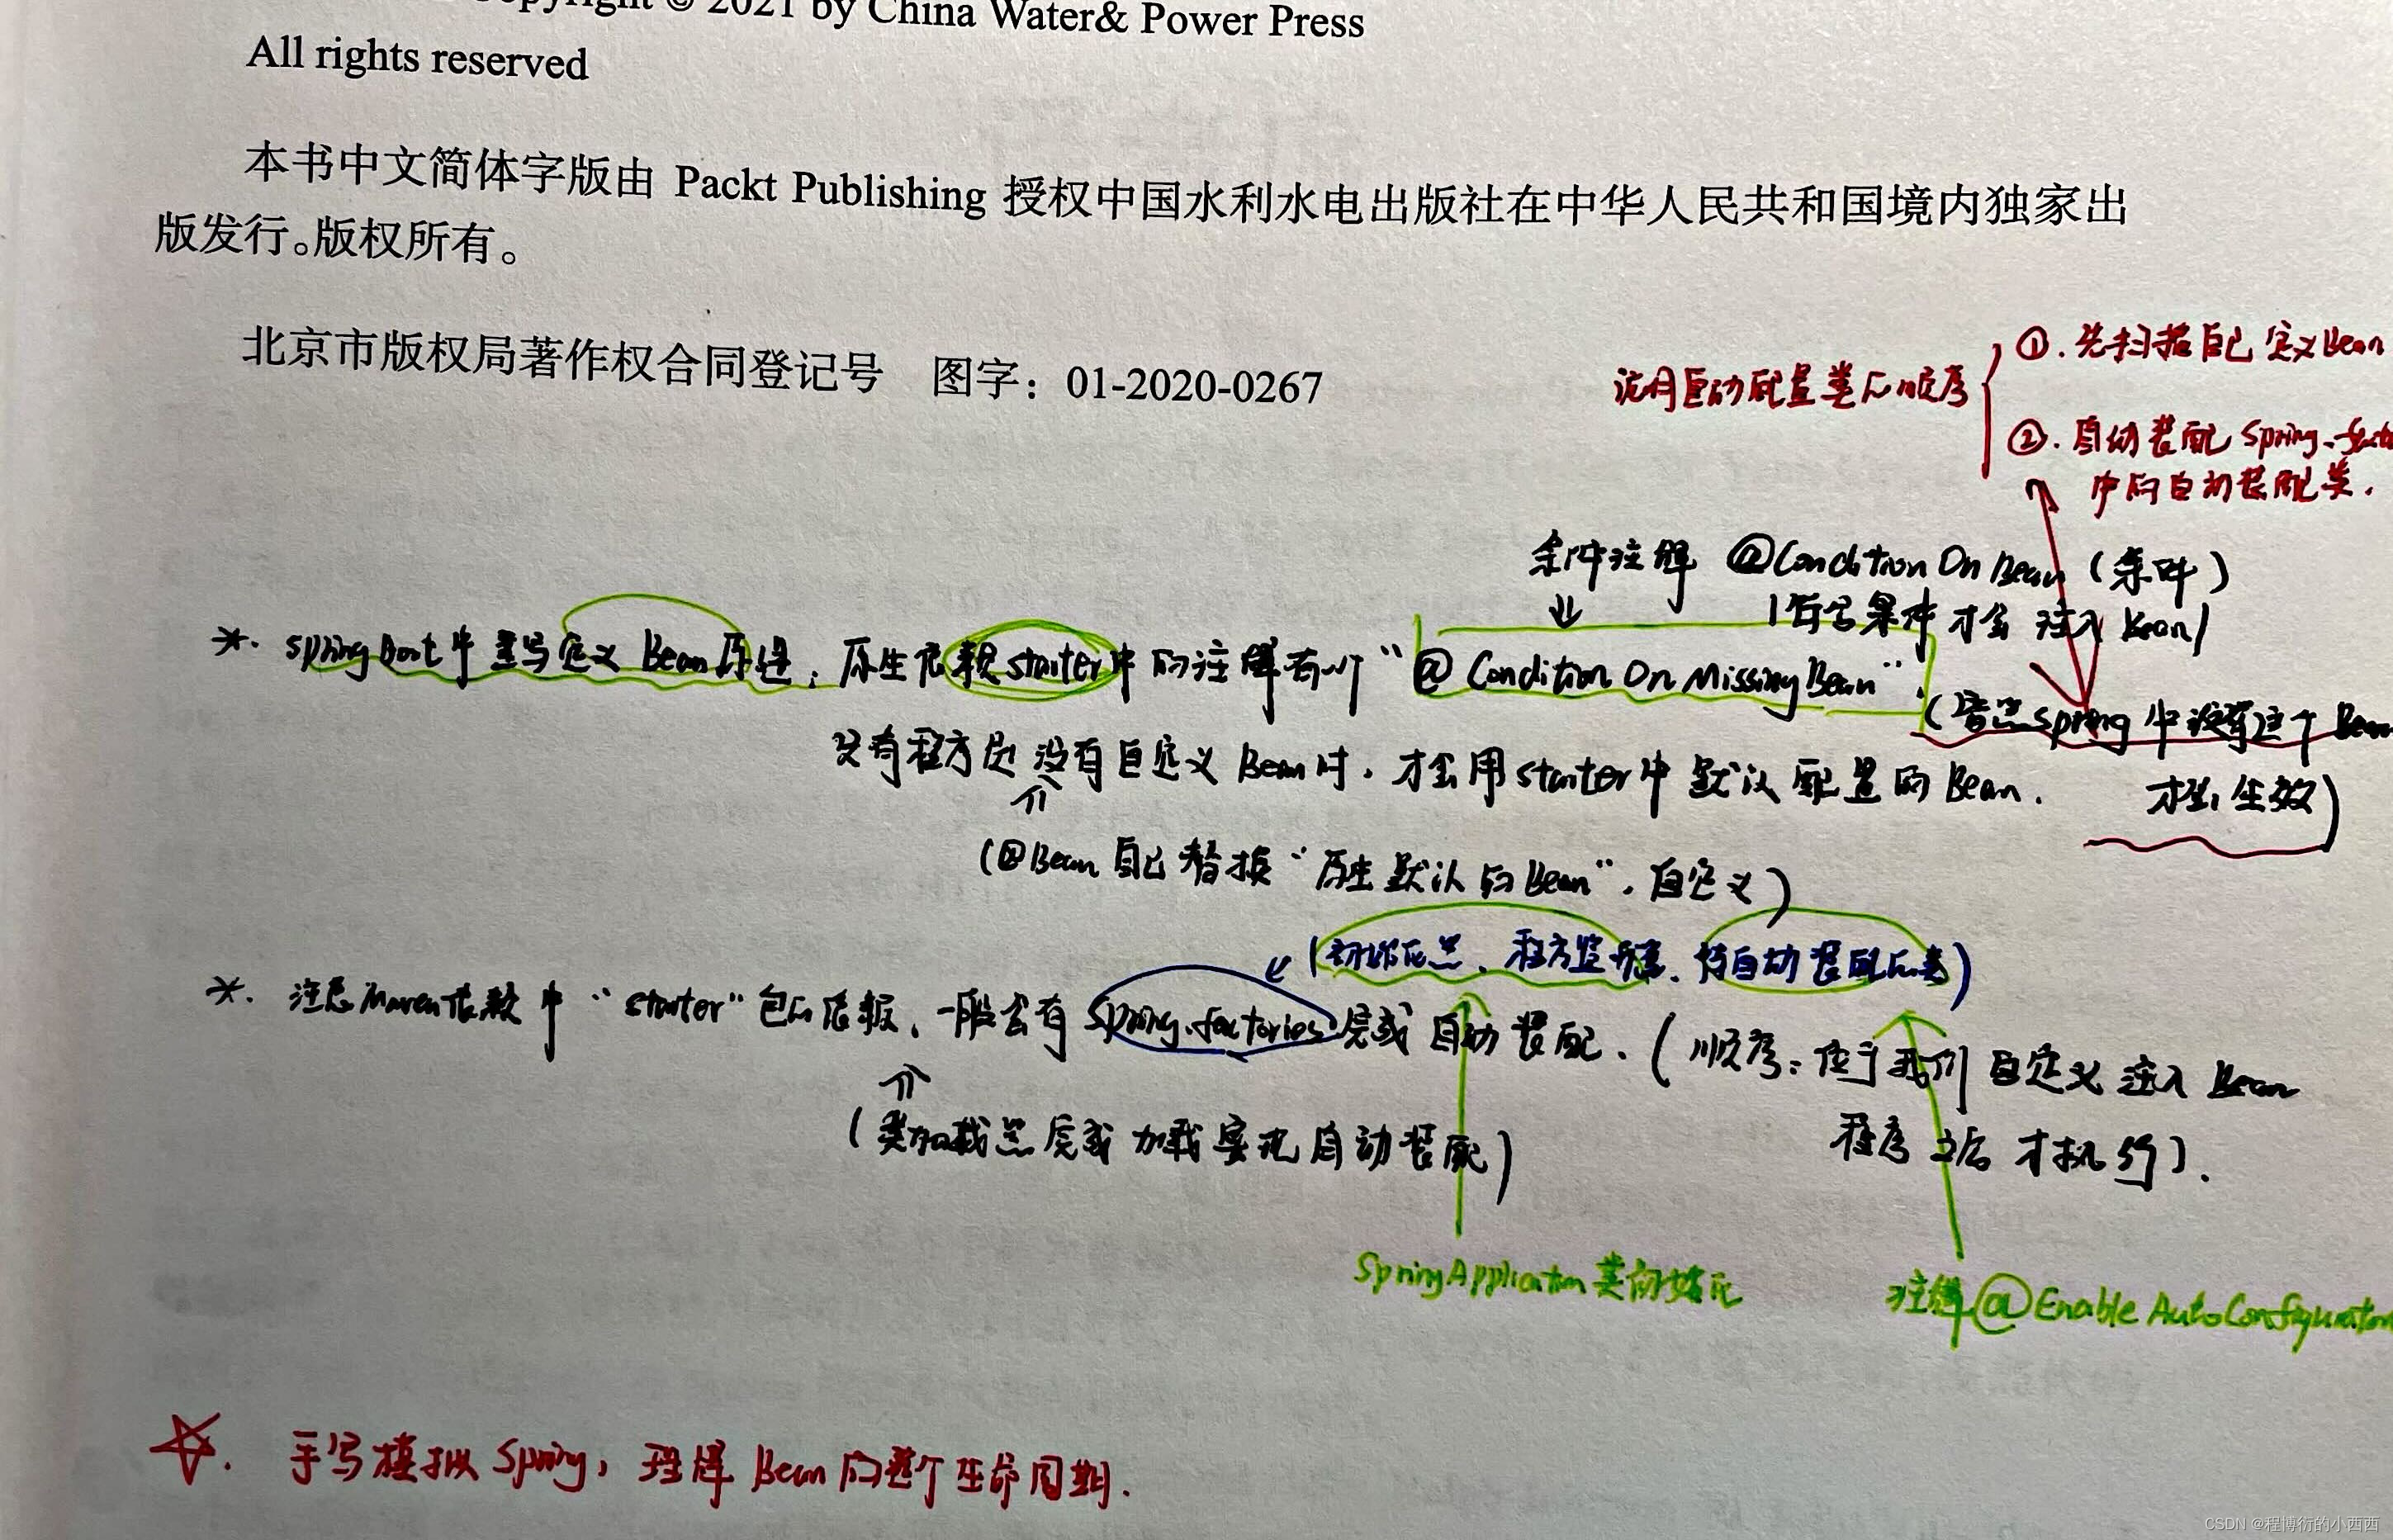 Copyright © 2021 by China Water& Power Press
All rights reserved
本书中文简体字版由 Packt Publishing 授权中国水利水电出版社在中华人民共和国境内独家出
版发行。版权所有。
北京市版权局著作权合同登记号 图字：01-2020-0267
说明自动配置类的顺序
①. 先扫描自己定义Bean
②. 自动装配 Spring.
中的自动装配类.
条件注解 @ConditionOnBean (条件)
才会 注入 Bean)
*. SpringBoot中重写定义 Bean原理: 原生依赖starter中的注解有个"@ConditionOnMissingBean".
Spring中没有这个Bean
才会生效)
只有程序员没有自定义Bean时, 才会用starter中默认配置的Bean.
(@Bean自己替换"原生默认的Bean", 自定义)
(初始化器、程序监听器、待自动装配的类)
*. 注意Maven依赖中"starter"包的依赖, 一般会有spring.factories完成自动装配. (顺序: 位于我们自定义注入Bean
程序之后才执行).
(类加载器完成加载实现自动装配)
SpringApplication类初始化
注解@EnableAutoConfiguration
☆. 手写模拟Spring, 理解Bean的整个生命周期.
CSDN @程博衍的小西西